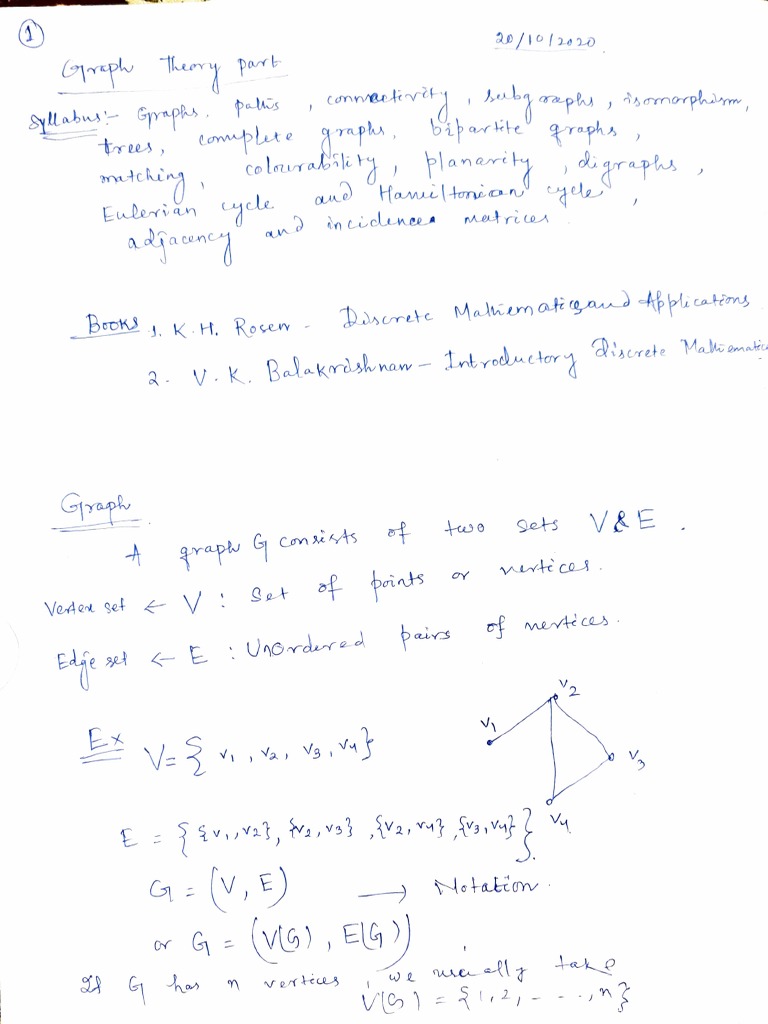 1
20/10/2020
Graph Theory part
Syllabus:- Graphs, paths, connectivity, subgraphs, isomorphism,
trees, complete graphs, bipartite graphs,
matching, colourability, planarity, digraphs,
Eulerian cycle and Hamiltonian cycle,
adjacency and incidence matrices
Books 1. K.H. Rosen - Discrete Mathematics and Applications
2. V.K. Balakrishnan - Introductory Discrete Mathematics
Graph
A graph G consists of two sets V & E.
Vertex set ← V : Set of points or vertices.
Edge set ← E : Unordered pairs of vertices.
Ex V = { v1, v2, v3, v4 }
v1
v2
v3
v4
E = { {v1, v2}, {v2, v3}, {v2, v4}, {v3, v4} }.
G = (V, E) → Notation.
or G = (V(G), E(G))
If G has n vertices, we usually take
V(G) = {1, 2, - - - -, n}